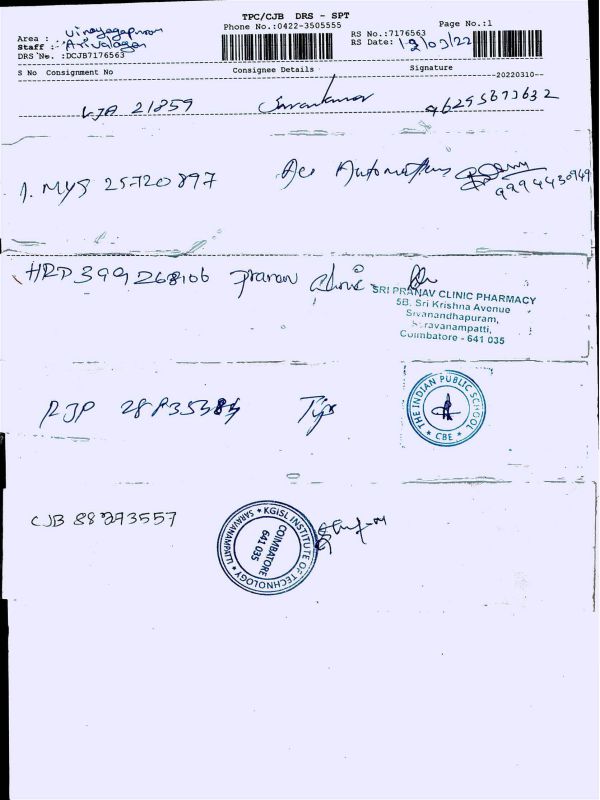 TPC/CJB DRS - SPT
Phone No.:0422-3505555
Page No.:1
Area : Vinayagapuram
Staff : Arivalagan
DRS No. :DCJB7176563
RS No.:7176563
RS Date: 12/03/22
S No Consignment No Consignee Details Signature
--20220310--
21859 Saravanakumar
1. MYS 25720897 Ace Automations
9994430949
HRD399268106 Pranav Clinic
SRI PRANAV CLINIC PHARMACY
5B, Sri Krishna Avenue
Sivanandhapuram,
Saravanampatti,
Coimbatore - 641 035
RJP Tips
THE INDIAN PUBLIC SCHOOL
* CBE *
CJB 88293557
KGISL INSTITUTE OF TECHNOLOGY * SARAVANAMPATTI *
COIMBATORE
641 035